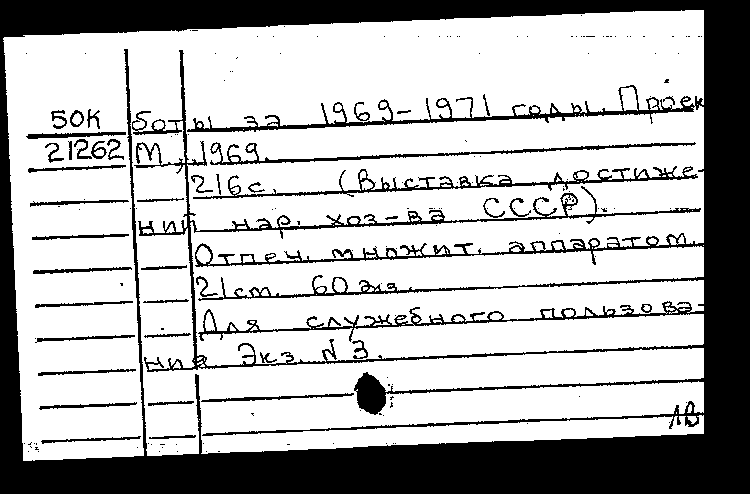 50К боты за 1969-1971 годы. Проек
21262 М., 1969.
216с. (Выставка достиже-
ний нар. хоз-ва СССР).
Отпеч. множит. аппаратом.
21см. 60 экз.
Для служебного пользова-
ния Экз. N 3.
ЛВ